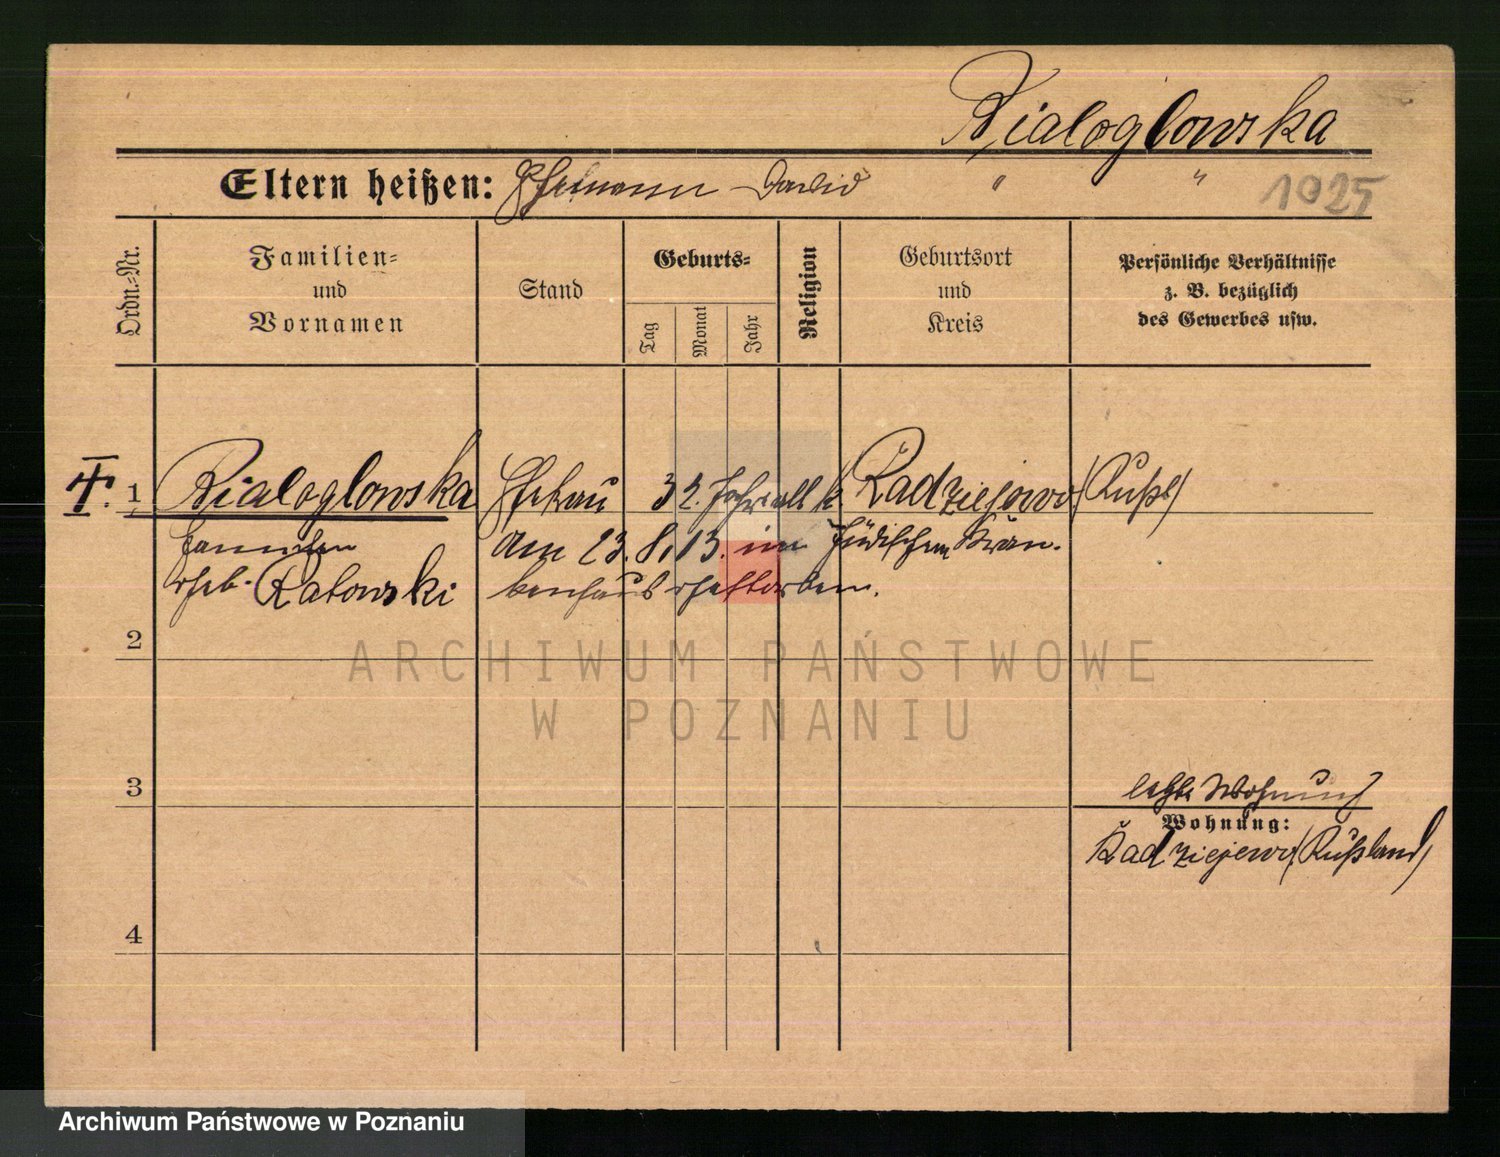 Bialoglowska
Eltern heißen: Ehemann David " "
1925
Ordn.=Nr.
Familien=
und
Vornamen
Stand
Geburts=
Tag
Monat
Jahr
Religion
Geburtsort
und
Kreis
Persönliche Verhältnisse
z. B. bezüglich
des Gewerbes usw.
1 Bialoglowska Ehefrau 32. Jahre alt k. Radziejewo (Rußl)
geb. Ratowski
am 23.8.13. im jüdischen Kran-
kenhaus
2
ARCHIWUM PAŃSTWOWE
W POZNANIU
3
letzte Wohnung
Wohnung:
Radziejewo (Rußland)
4
Archiwum Państwowe w Poznaniu